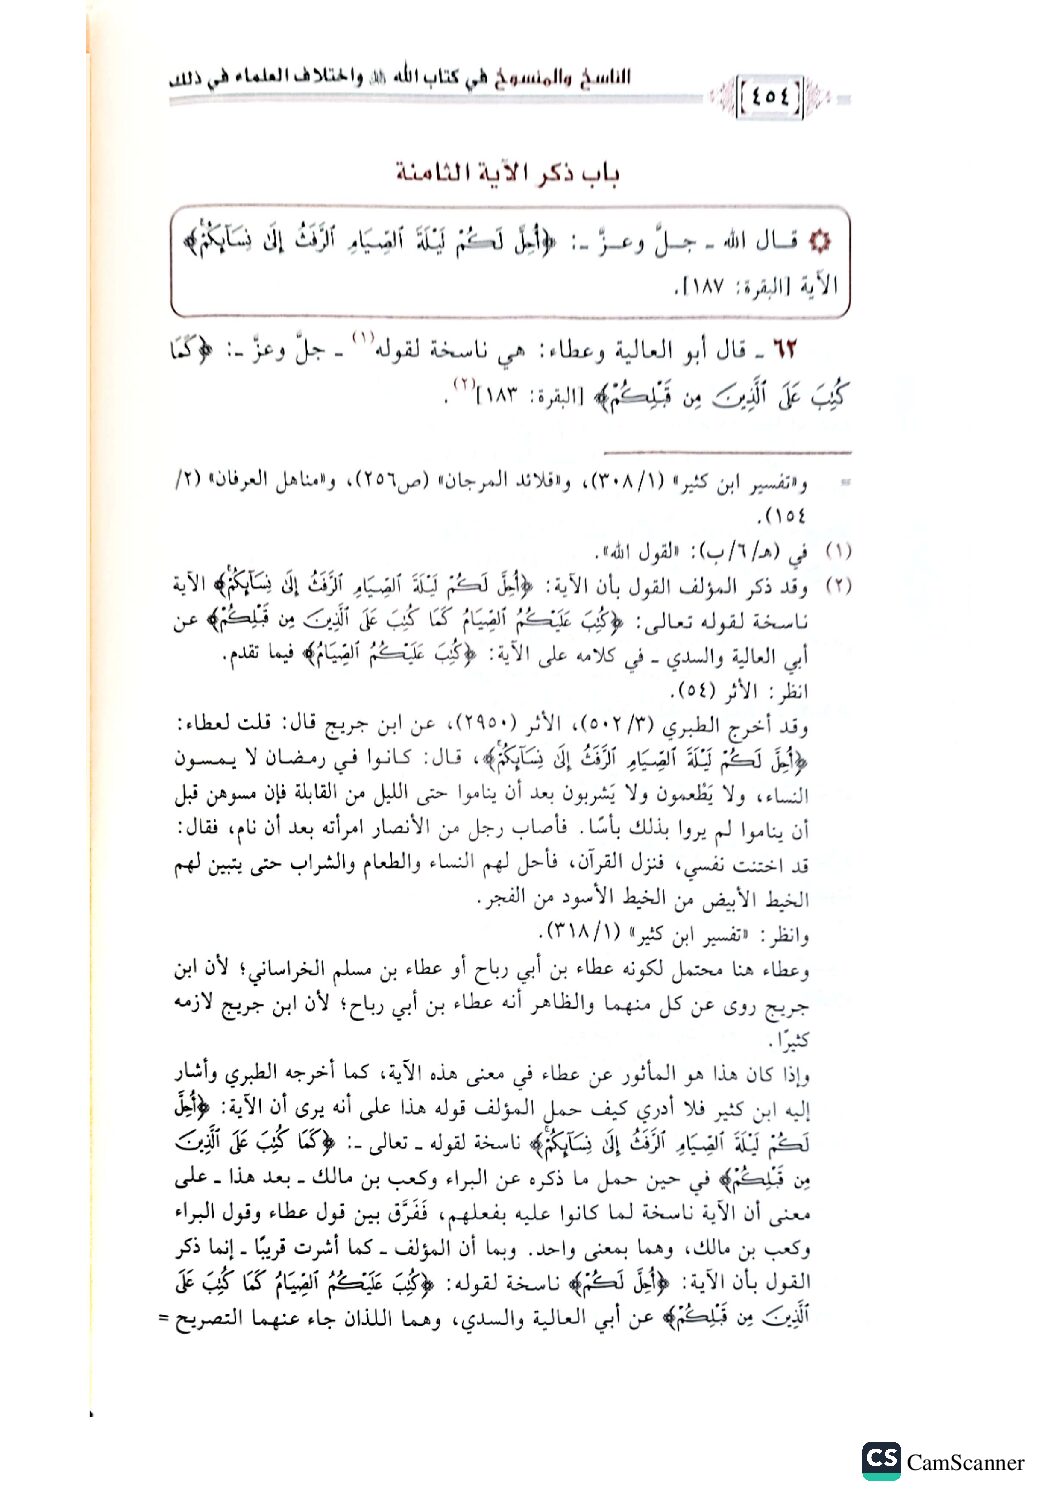 [٤٥٤] الناسخ والمنسوخ في كتاب الله ﷻ واختلاف العلماء في ذلك
باب ذكر الآية الثامنة
قال الله ـ جلَّ وعزَّ ـ: ﴿أُحِلَّ لَكُمْ لَيْلَةَ ٱلصِّيَامِ ٱلرَّفَثُ إِلَىٰ نِسَآئِكُمْ﴾
الآية [البقرة: ١٨٧].
٦٢ ـ قال أبو العالية وعطاء: هي ناسخة لقوله(١) ـ جلَّ وعزَّ ـ: ﴿كَمَا
كُتِبَ عَلَى ٱلَّذِينَ مِن قَبْلِكُمْ﴾ [البقرة: ١٨٣](٢).
= و«تفسير ابن كثير» (٣٠٨/١)، و«قلائد المرجان» (ص٢٥٦)، و«مناهل العرفان» (٢/
١٥٤).
(١) في (هـ/٦/ب): «لقول الله».
(٢) وقد ذكر المؤلف القول بأن الآية: ﴿أُحِلَّ لَكُمْ لَيْلَةَ ٱلصِّيَامِ ٱلرَّفَثُ إِلَىٰ نِسَآئِكُمْ﴾ الآية
ناسخة لقوله تعالى: ﴿كُتِبَ عَلَيْكُمُ ٱلصِّيَامُ كَمَا كُتِبَ عَلَى ٱلَّذِينَ مِن قَبْلِكُمْ﴾ عن
أبي العالية والسدي ـ في كلامه على الآية: ﴿كُتِبَ عَلَيْكُمُ ٱلصِّيَامُ﴾ فيما تقدم.
انظر: الأثر (٥٤).
وقد أخرج الطبري (٥٠٢/٣)، الأثر (٢٩٥٠)، عن ابن جريج قال: قلت لعطاء:
﴿أُحِلَّ لَكُمْ لَيْلَةَ ٱلصِّيَامِ ٱلرَّفَثُ إِلَىٰ نِسَآئِكُمْ﴾، قال: كانوا في رمضان لا يمسون
النساء، ولا يَطْعمون ولا يَشربون بعد أن يناموا حتى الليل من القابلة فإن مسوهن قبل
أن يناموا لم يروا بذلك بأسًا. فأصاب رجل من الأنصار امرأته بعد أن نام، فقال:
قد اختنت نفسي، فنزل القرآن، فأحل لهم النساء والطعام والشراب حتى يتبين لهم
الخيط الأبيض من الخيط الأسود من الفجر.
وانظر: «تفسير ابن كثير» (٣١٨/١).
وعطاء هنا محتمل لكونه عطاء بن أبي رباح أو عطاء بن مسلم الخراساني؛ لأن ابن
جريج روى عن كل منهما والظاهر أنه عطاء بن أبي رباح؛ لأن ابن جريج لازمه
كثيرًا.
وإذا كان هذا هو المأثور عن عطاء في معنى هذه الآية، كما أخرجه الطبري وأشار
إليه ابن كثير فلا أدري كيف حمل المؤلف قوله هذا على أنه يرى أن الآية: ﴿أُحِلَّ
لَكُمْ لَيْلَةَ ٱلصِّيَامِ ٱلرَّفَثُ إِلَىٰ نِسَآئِكُمْ﴾ ناسخة لقوله ـ تعالى ـ: ﴿كَمَا كُتِبَ عَلَى ٱلَّذِينَ
مِن قَبْلِكُمْ﴾ في حين حمل ما ذكره عن البراء وكعب بن مالك ـ بعد هذا ـ على
معنى أن الآية ناسخة لما كانوا عليه بفعلهم، فَفَرَّق بين قول عطاء وقول البراء
وكعب بن مالك، وهما بمعنى واحد. وبما أن المؤلف ـ كما أشرت قريبًا ـ إنما ذكر
القول بأن الآية: ﴿أُحِلَّ لَكُمْ﴾ ناسخة لقوله: ﴿كُتِبَ عَلَيْكُمُ ٱلصِّيَامُ كَمَا كُتِبَ عَلَى
ٱلَّذِينَ مِن قَبْلِكُمْ﴾ عن أبي العالية والسدي، وهما اللذان جاء عنهما التصريح =
CS CamScanner